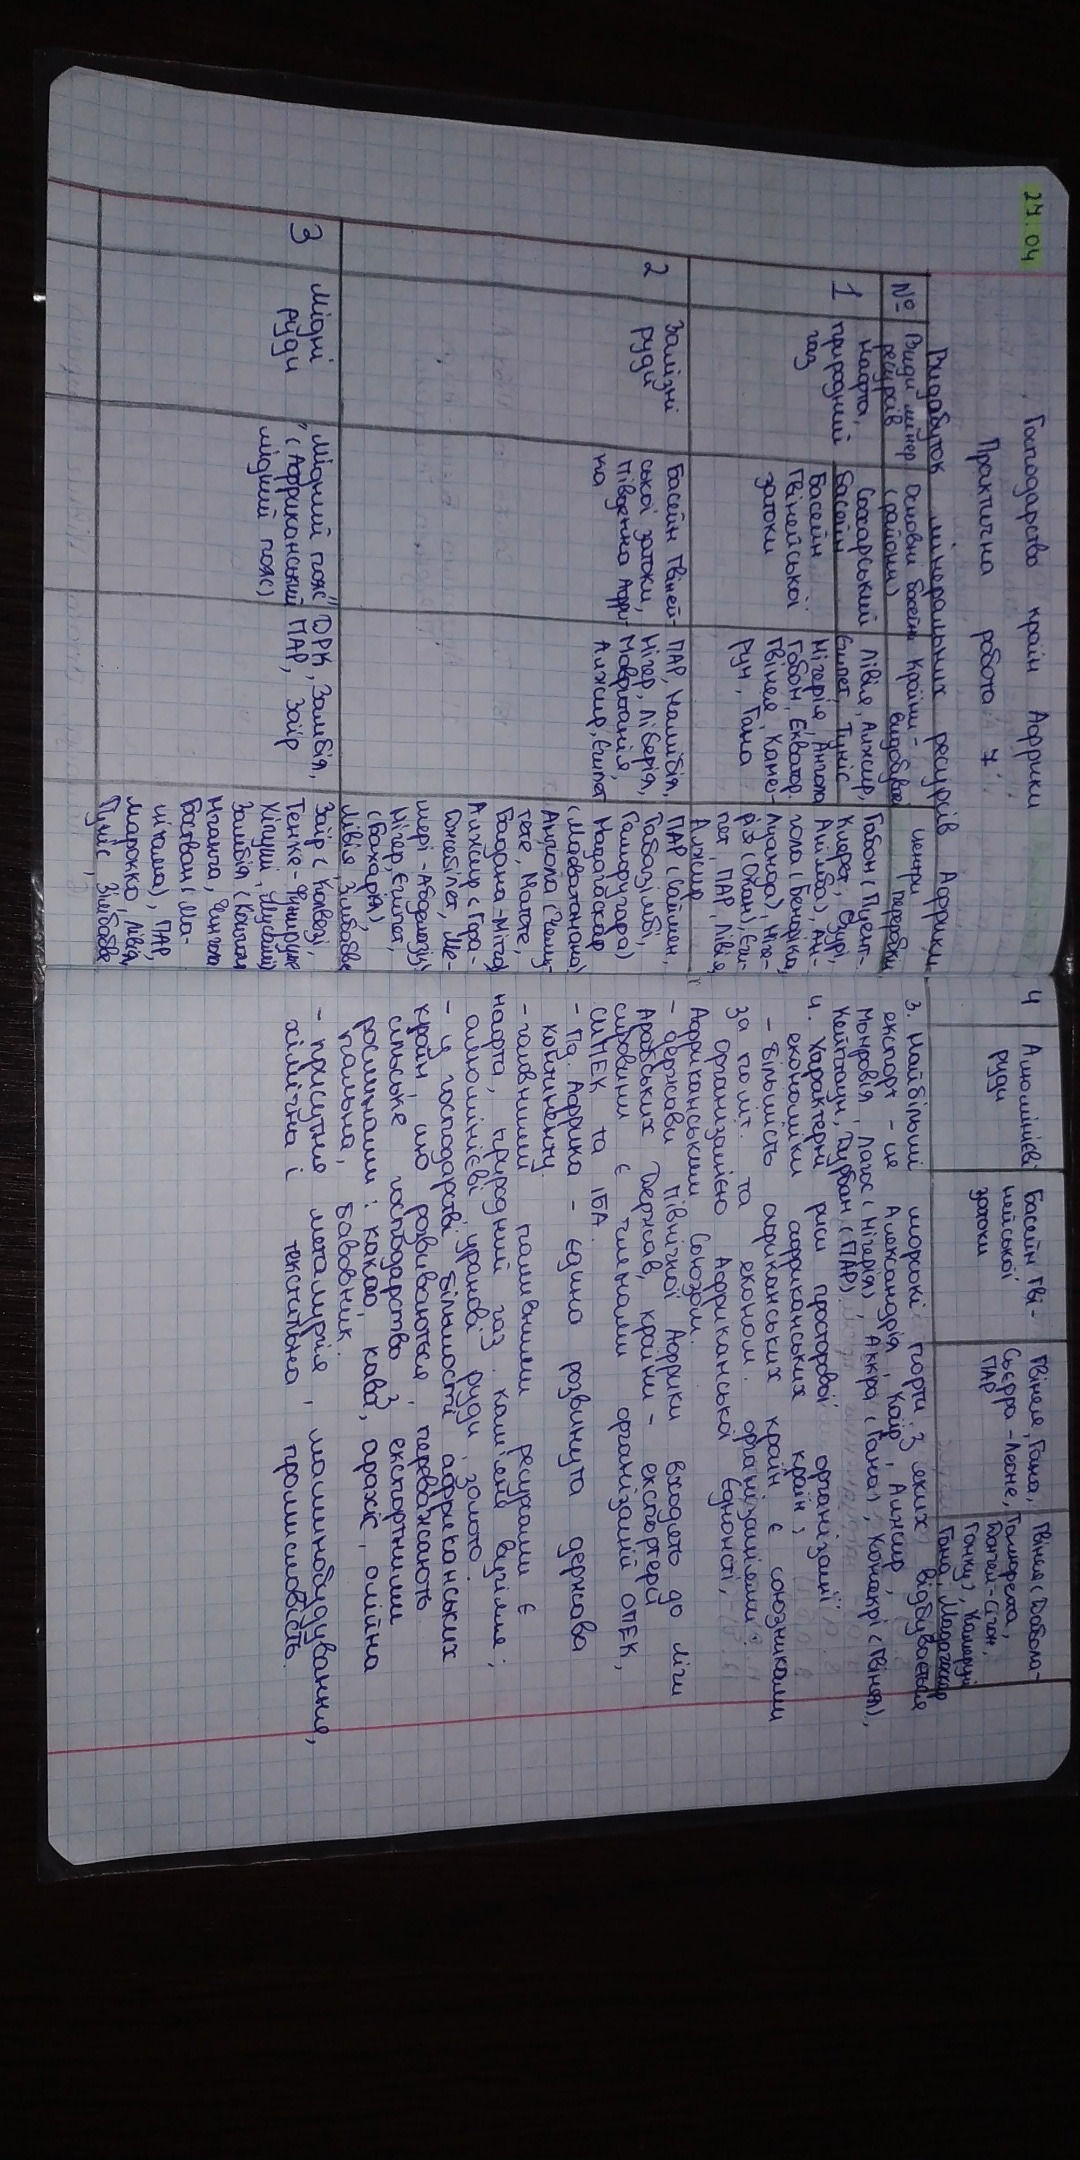 27.04
Господарство країн Африки
Практична робота 7.
Видобуток мінеральних ресурсів Африки
№ Види мінер. ресурсів
Основні басейни (райони)
Країни - видобувачі
центри переробки
1
нафта, природний газ
Сахарський басейн
Лівія, Алжир, Єгипет, Туніс
Басейн Гвінейської затоки
Нігерія, Ангола
Габон, Екватор.
Гвінея, Камерун, Гана
Габон (Пуент-
гола (Бенгела,
Луанда), Ніге-
рія (Окан), Єги-
пет, ПАР, Лівія,
Алжир
2
Залізні руди
Басейн Гвіней-
ської затоки,
Південна Афри-
ка
ПАР, Намібія,
Нігер, Ліберія,
Мавританія,
Алжир, Єгипет
Мадагаскар
Ангола
Алжир (Гара-
Джебілет, Ме-
шері - Абделазіз)
Нігер, Єгипет,
(Бахарія),
Лівія, Зімбабве
3
Мідні руди
"Мідний пояс"
(Африканський
мідний пояс)
ДРК, Замбія,
ПАР, Заїр
Заїр (Колвезі,
Тенке - Фунгуруме
Замбія
Нчанга, Чингола
ПАР,
Марокко, Лівія,
Туніс, Зімбабве
4
Алюмінієві
руди
Басейн Гві-
нейської
затоки
Гвінея, Гана,
Сьєрра - Леоне,
ПАР
Гана, Мадагаскар
3. Найбільші морські порти, з яких відбувається
експорт - це Александрія, Каїр, Алжир,
Монровія, Лагос (Нігерія), Аккра (Гана), Конакрі (Гвінея),
Кейптаун, Дурбан (ПАР).
4. Характерні риси просторової організації
економіки африканських країн:
- більшість африканських країн є союзниками
за політ. та економ. організаціями:
організацією Африканської Єдності,
Африканським Союзом.
- держави Північної Африки входять до Ліги
Арабських Держав, країни - експортери
сировини є членами організацій ОПЕК,
СИПЕК та ІБА.
- Пд. Африка - єдина розвинута держава
континенту.
- головними паливними ресурсами є
нафта, природний газ, кам'яне вугілля;
алюмінієві, уранові руди, золото.
- у господарстві більшості африканських
країн, що розвиваються, переважають
сільське господарство з експортними
рослинами: какао, кава, арахіс, олійна
пальма, бавовник.
- присутня металургія, машинобудування,
хімічна і текстильна промисловість.